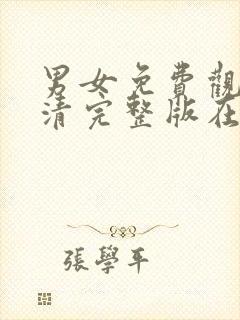 男女免費觀
清完整版在
張學平